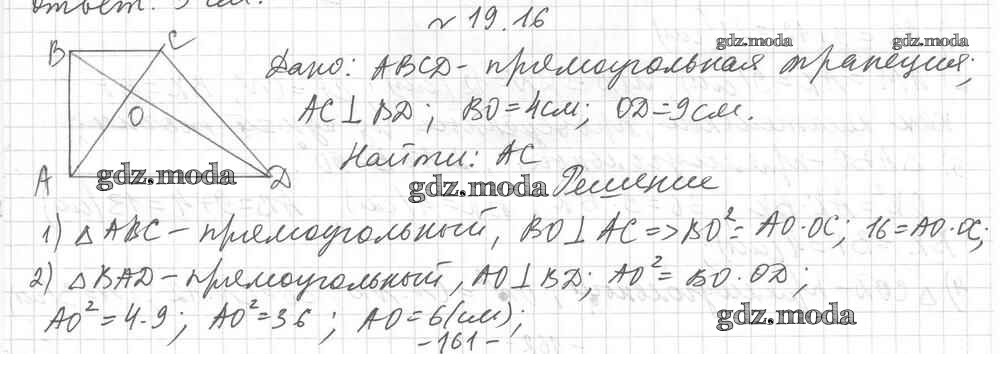 Ответ: 9 см.
№ 19.16
gdz.moda gdz.moda
B C
Дано: ABCD - прямоугольная трапеция;
AC⊥BD; BO=4см; OD=9см.
O
Найти: AC
A gdz.moda D gdz.moda Решение
1) △ABC - прямоугольный, BO⊥AC=>BO²=AO·OC; 16=AO·OC;
2) △BAD - прямоугольный, AO⊥BD; AO²=BO·OD;
AO²=4·9; AO²=36; AO=6(см);
gdz.moda
-161-